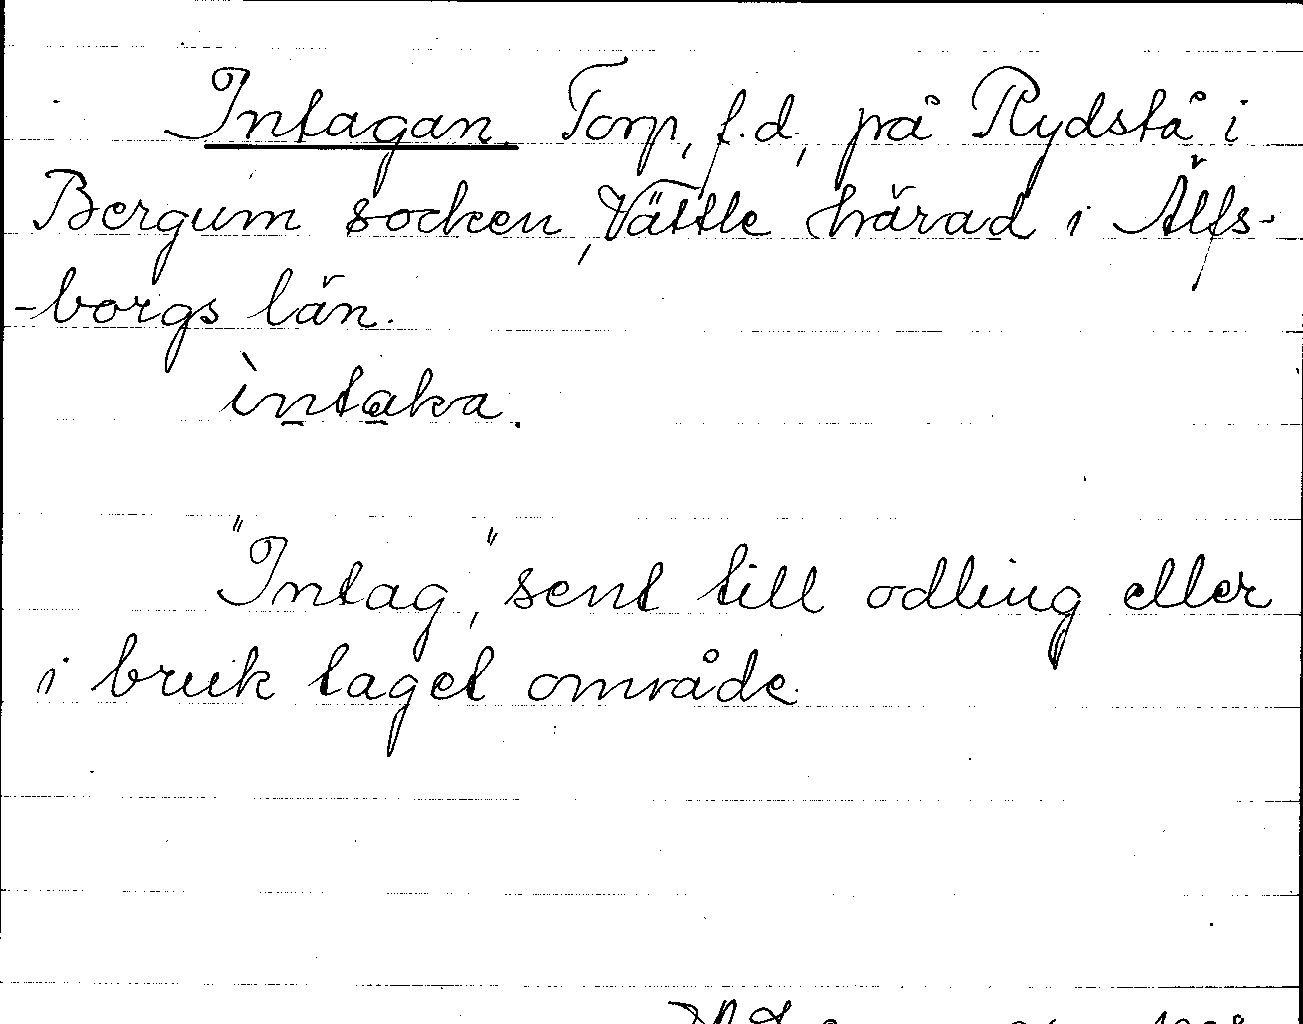 Intagan. Torp, f.d., på Rydstå i
Bergum socken, Vättle härad i Älfs-
-borgs län.
ìntaka.
"Intag," sent till odling eller
i bruk taget område.